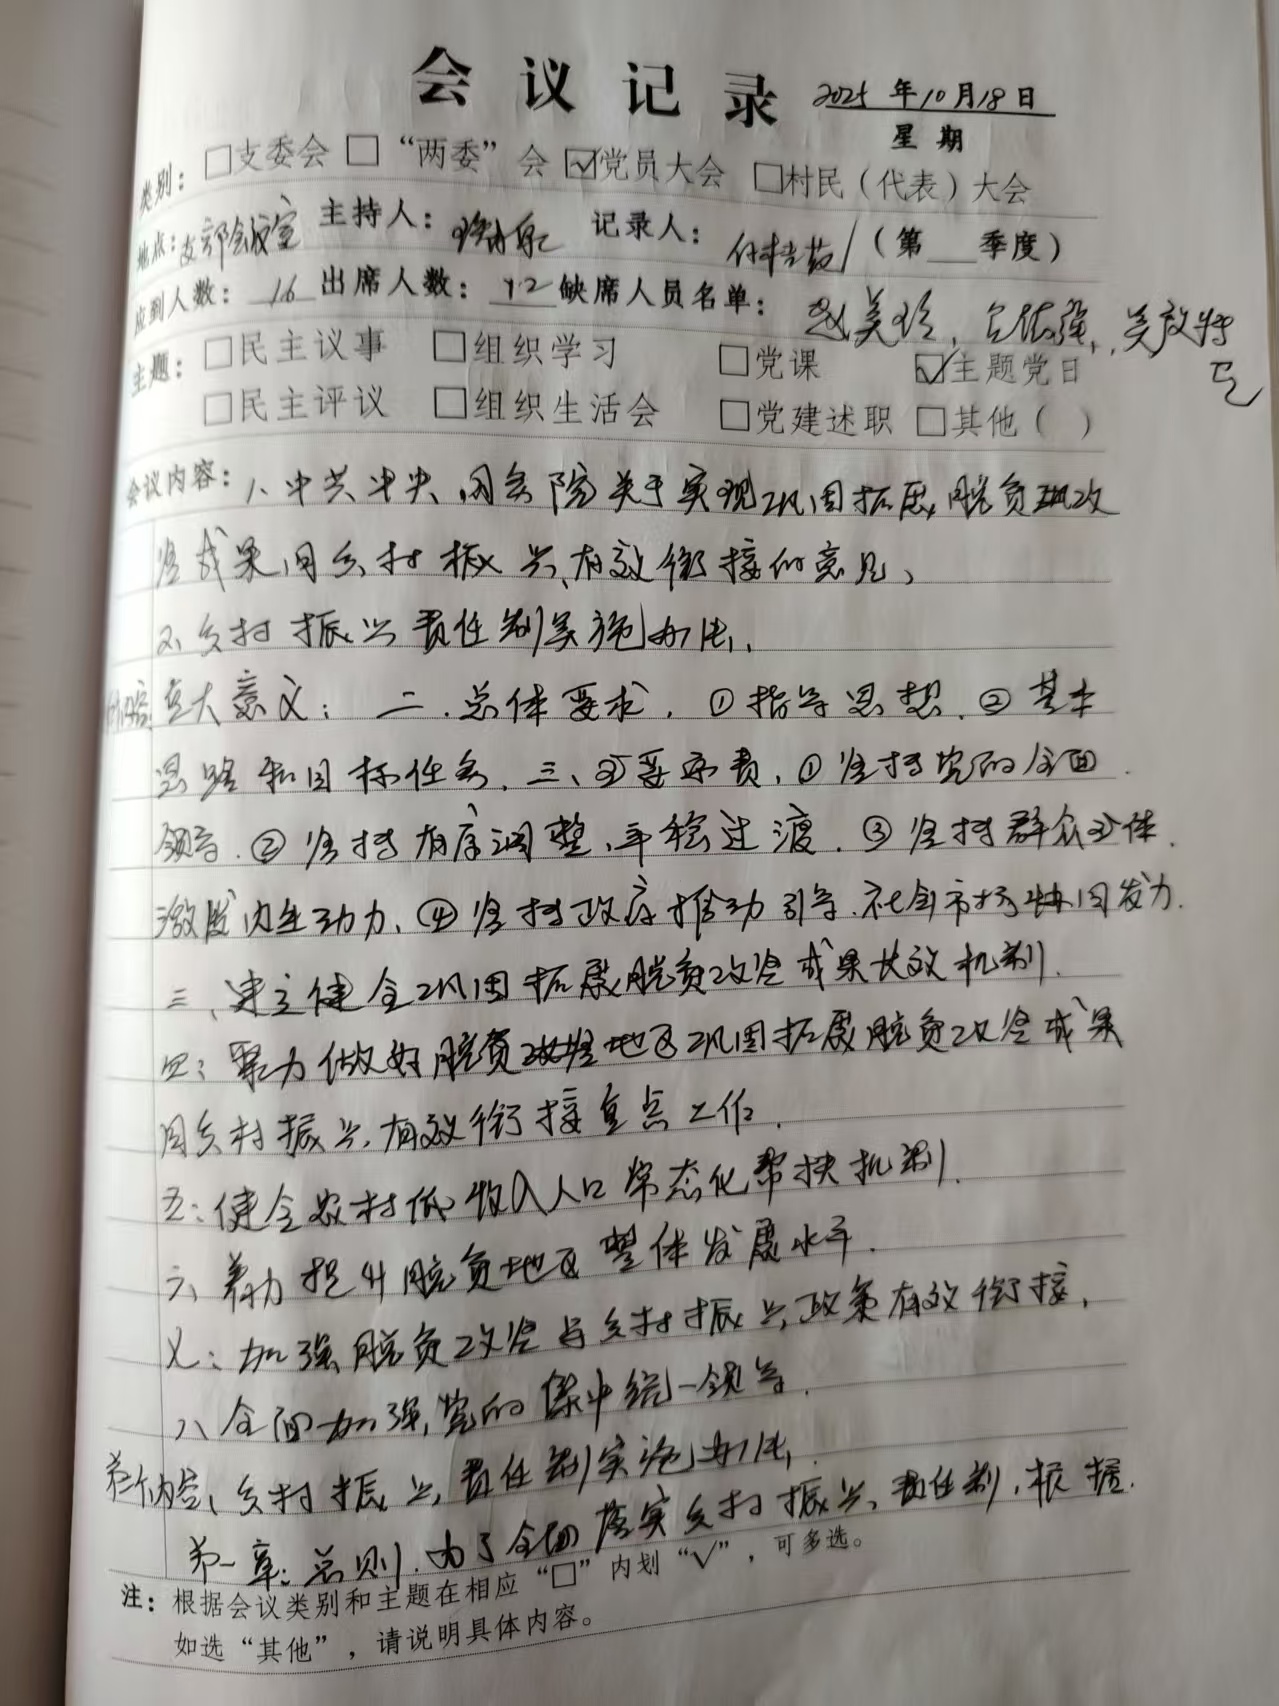 会议记录 2025年10月18日
星期
类别：□支委会 □“两委”会 ☑党员大会 □村民（代表）大会
地点：支部会议室 主持人： 记录人： （第 季度）
应到人数：16 出席人数：12 缺席人员名单：
主题：□民主议事 □组织学习 □党课 ☑主题党日
□民主评议 □组织生活会 □党建述职 □其他（ ）
会议内容：1、中共中央、国务院关于实现巩固拓展脱贫攻
坚成果同乡村振兴有效衔接的意见、
2、乡村振兴责任制实施办法、
重大意义：二、总体要求，①指导思想，②基本
思路和目标任务，三、主要原责，①坚持党的全面
领导，②坚持有序调整、平稳过渡，③坚持群众主体，
激发内生动力、④坚持政府推动引导、社会市场协同发力.
三、建立健全巩固拓展脱贫攻坚成果长效机制.
四：聚力做好脱贫地区巩固拓展脱贫攻坚成果
同乡村振兴有效衔接重点工作.
五：健全农村低收入人口常态化帮扶机制.
六、着力提升脱贫地区整体发展水平.
七：加强脱贫攻坚与乡村振兴政策有效衔接，
八、全面加强党的集中统一领导.
第二个内容、乡村振兴责任制实施办法，
第一章：总则.为了全面落实乡村振兴责任制，根据.
注：根据会议类别和主题在相应“□”内划“√”，可多选。
如选“其他”，请说明具体内容。